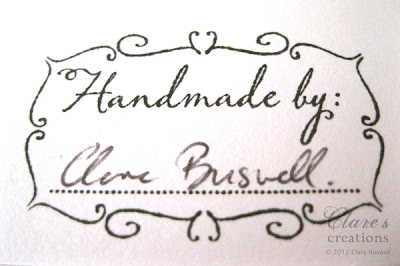 Handmade by:
Clare Buswell.
Clare's
creations
© 2012 Clare Buswell